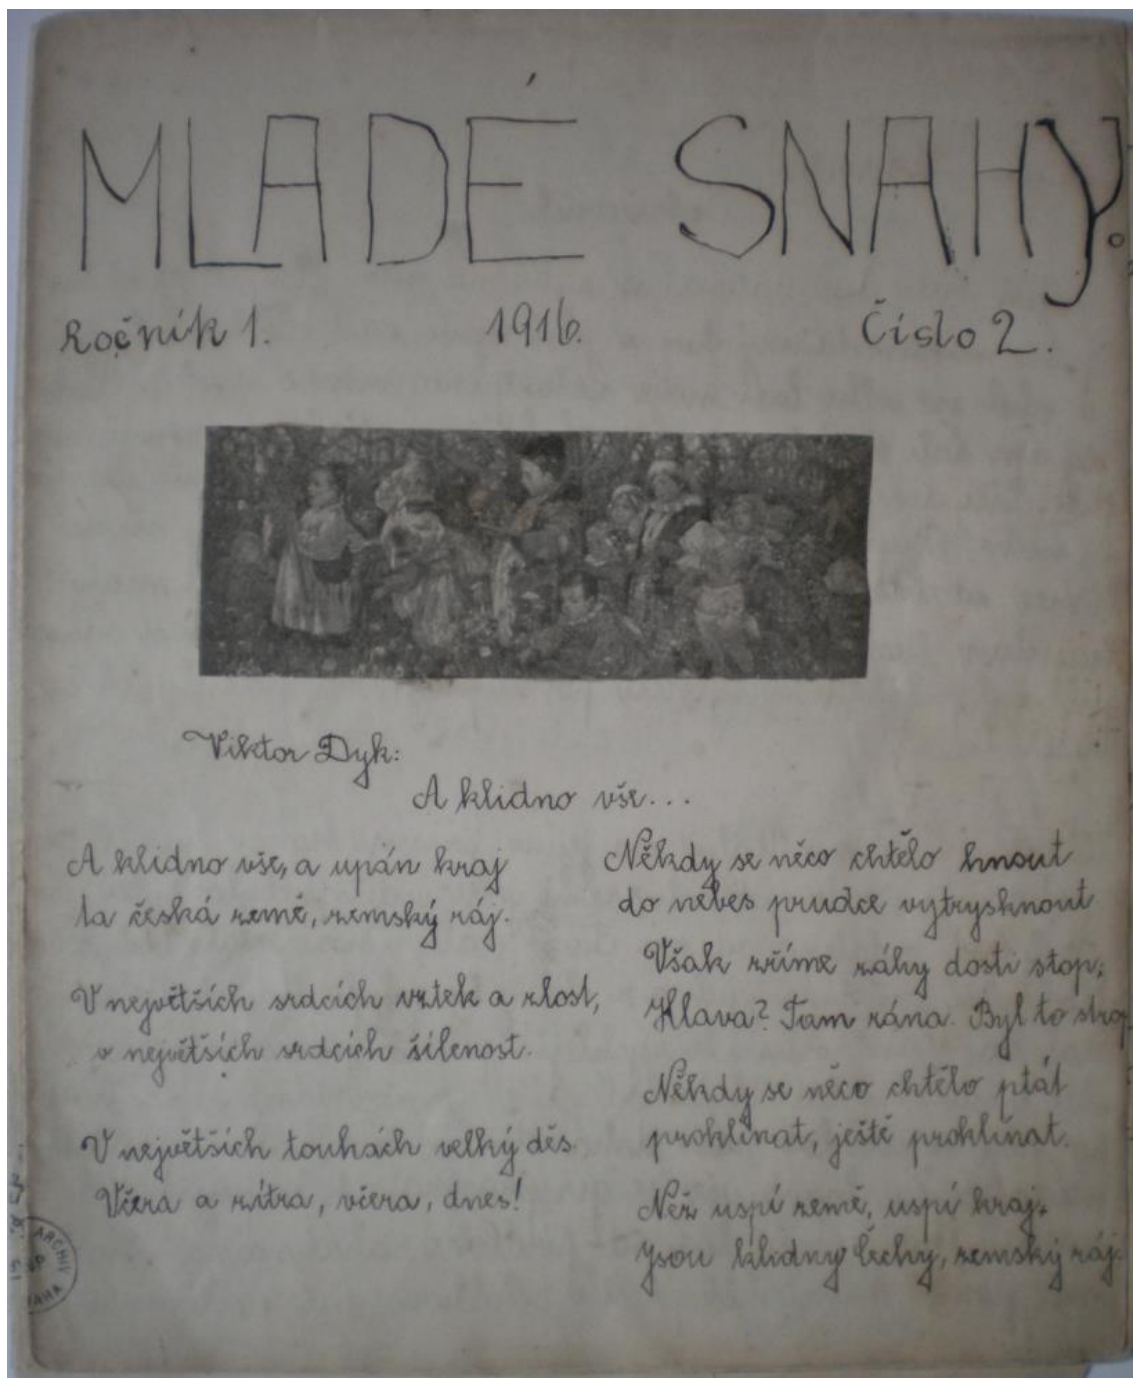 MLADÉ SNAHY.
Ročník 1. 1916. Číslo 2.
Viktor Dyk:
A klidno vše...
A klidno vše, a upán kraj
ta česká země, zemský ráj.
V největších srdcích vztek a zlost,
v největších srdcích šílenost.
V největších touhách velký děs.
Včera a zítra, včera, dnes!
Někdy se něco chtělo hnout
do nebes prudce vytrysknout
Však zříme záhy dosti stop;
Hlava? Tam rána. Byl to strop
Někdy se něco chtělo ptát
proklínat, ještě proklínat.
Než uspí země, uspí kraj,
Jsou klidny Čechy, zemský ráj.
ARCHIV
PRAHA